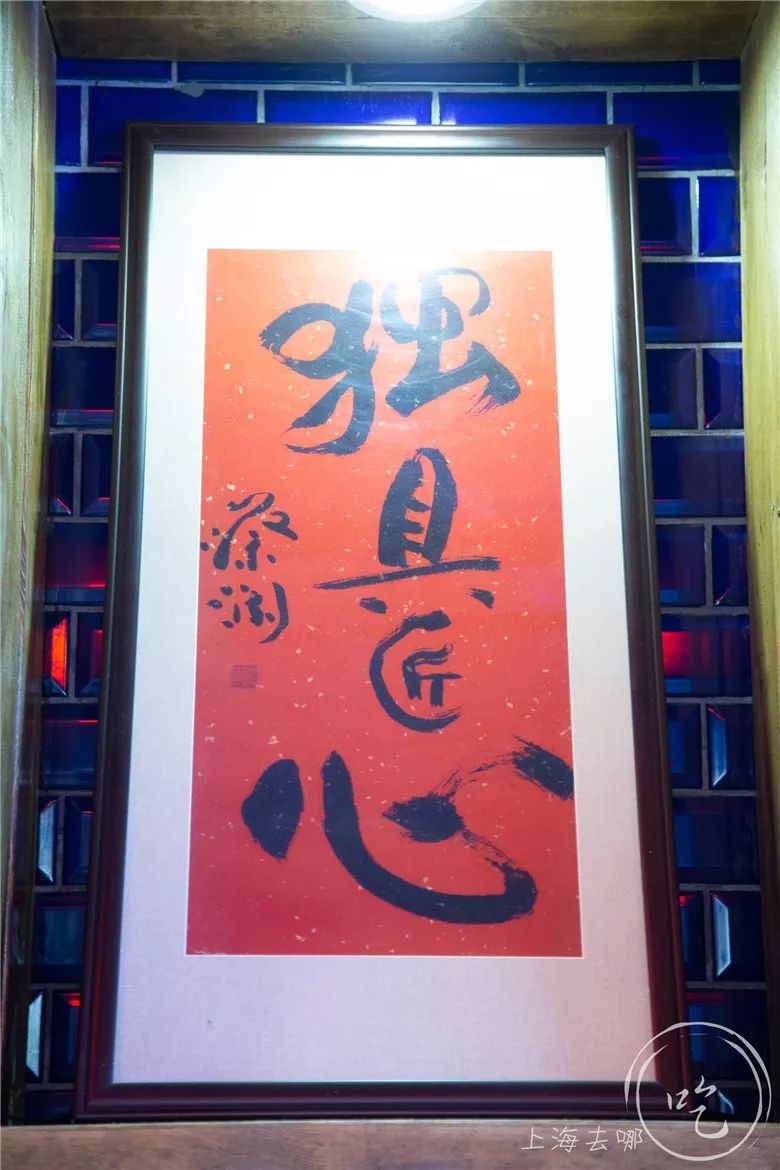 独具匠心
蔡澜
上海去哪吃